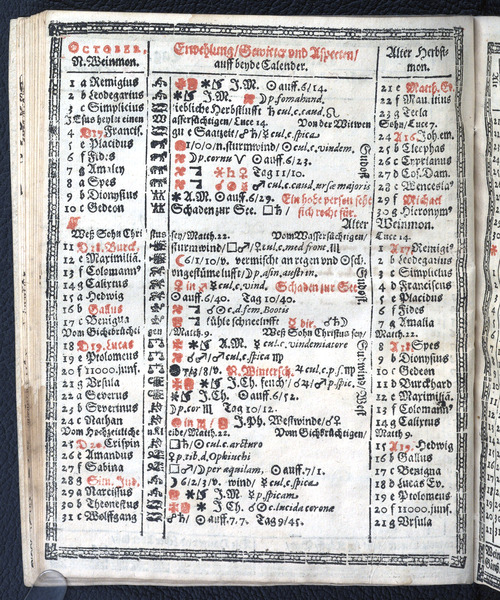 OCTOBER, Erwehlung/Gewitter vnd Aspecten/ Alter Herbst-
N. Weinmon. auff beyde Calender. mon.
1 a Remigius J.M. ☉ auff.6/14. 21 e Matth. Ev.
2 b Leodegarius J.M. ☽p.fomahand. 22 f Mauritius
3 c Simplicius liebliche Herbstlufft ♄ cul.c.caud.♌ 23 g Tecla
Jesus heylt einen wassersüchtigen/Luce 14. Von der Witwen Sohn/Luce 7.
4 D17 Francis. gute Saatzeit/☍♄/☿cul.c.spica 24 A16 Joh.em.
5 e Placidus 1/0/n.sturmwind/☉cul.c.vindem. 25 b Cleophas
6 f Fides ☽p.cornu ♉ ☉ auff.6/23. 26 c Cyprianus
7 g Amaley Tag 11/10. 27 d Cos. Dam.
8 a Spes ♂cul.c.caud.ursæ majoris 28 e Wencesla⁹
9 b Dionysius A.M. ☉auff.6/29. Ein hohe person sehe 29 f Michael
10 c Gedeon Schaden zur See. □♄/ sich recht für. 30 g Hieronym⁹
Alter Weinmon.
Weß Sohn Christus sey/Matth.22. Vom Wassersüchtigen/ Luce 14.
11 D18 Burck. sturmwind/□♂/☿cul.c.med.front.♏ 1 A17 Remigi⁹
12 e Maximilia. 6/1/10/v. vermischt an regen vnd 2 b Leodegarius
13 f Colomann⁹ vngestüme lufft/☽p.asin.austrin. 3 c Simplicius
14 g Calixtus ♀ in ♐ ☿cul.c.vind. Schaden zur See 4 d Franciscus
15 a Hedwig ☉auff.6/40. Tag 10/40. 5 e Placidus
16 b Gallus ♂☉c.d.sem.Bootis 6 f Fides
17 c Benigna kühle schneelufft ☿ dir. 7 g Amalia
Vom Gichbrüchigen Matth.9. Weß Sohn Christus sey/ Matth.22.
18 D19 Lucas A.M. ☿cul.c.vindemiatore 8 A18 Spes
19 e Ptolomeus ☍♂/♂cul.c.spica ♍ 9 b Dionysius
20 f 11000.junf. 7/3/8/v. N.Wintersch. ♃cul.c.p.f.♍ 10 c Gedeon
21 g Vrsula J.Ch. feucht/♂♃/♂p.spic. 11 d Burckhard
22 a Severus J.Ch. ☉ auff.6/52. 12 e Maximilia.
23 b Severinus ☽p.cor ♏ Tag 10/12. 13 f Colomann⁹
24 c Nathan J.Ph. Westwinde/♂☿ 14 g Calixtus
Vom Hochzeitlichen kleide/Matth.22. Vom Gichbrüchigen/ Matth 9.
25 D20 Crispin □♄/☉cul.c.arcturo 15 A19 Hedwig
26 e Amandus ☿p.tib.d.Ophiuchi 16 b Gallus
27 f Sabina □♂/☽per aquilam, ☉auff.7/1. 17 c Benigna
28 g Sim. Jud. ☽6/2/3/v. wind/☍♂ 18 d Lucas Ev.
29 a Narcissus J.M. ☿p.spicam 19 e Ptolomeus
30 b Theonestus J.Ch. ☉c.lucida coronæ 20 f 11000.junf.
31 c Wolffgang ☍♄/ ☉auff.7.7. Tag 9/45. 21 g Vrsula